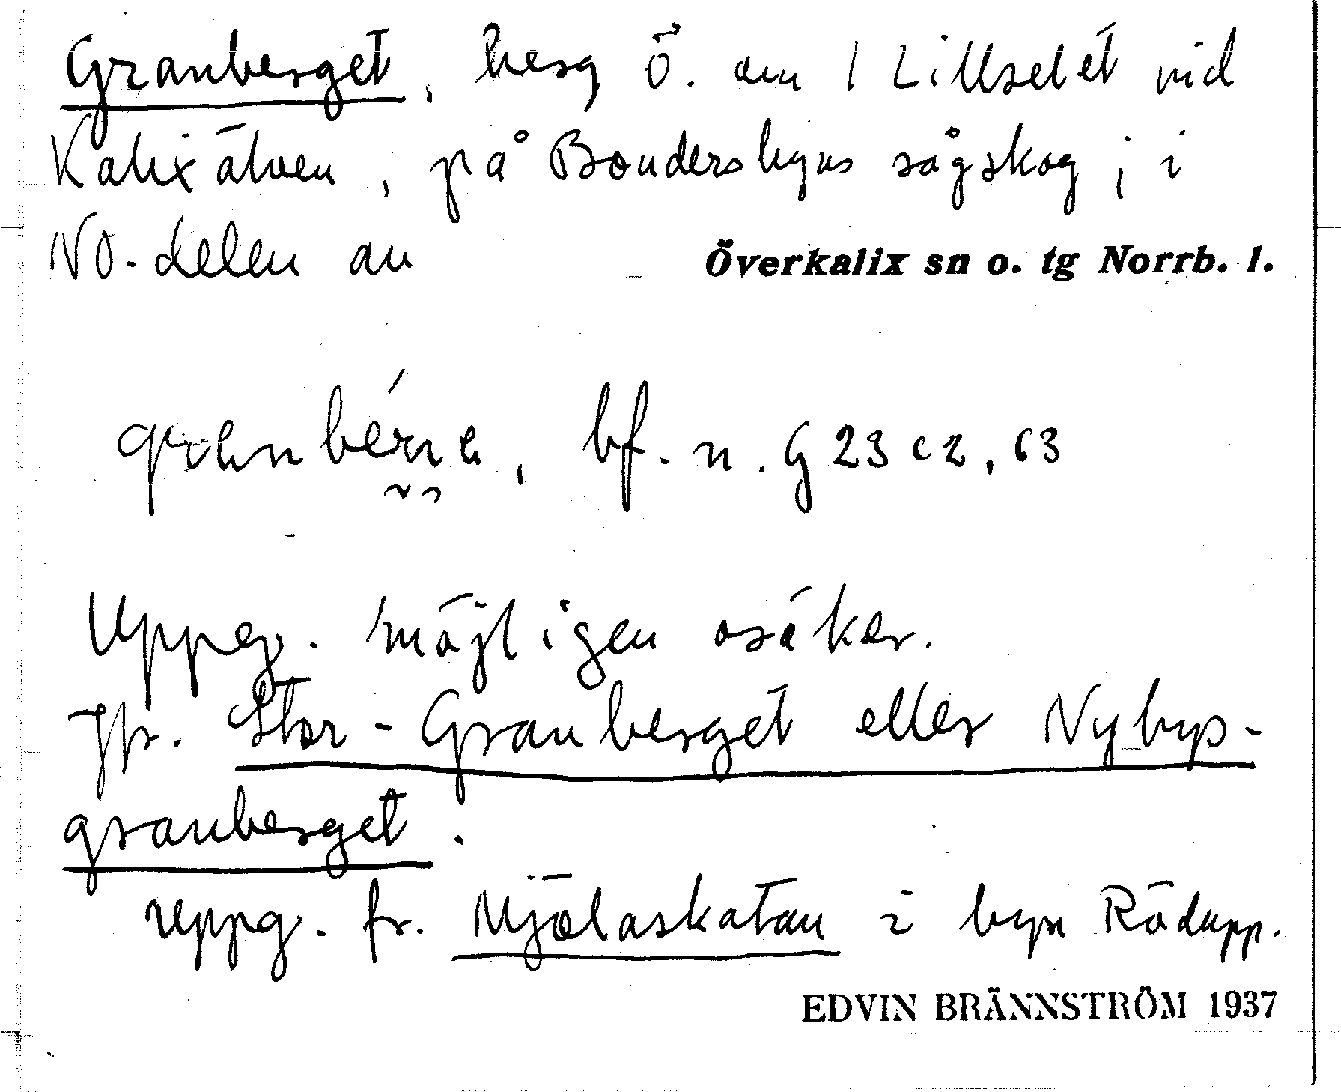 Granberget, berg Ö. om Lillselet vid
Kalixälven, på Bondersbyns sågskog; i
NO-delen av Överkalix sn o. tg Norrb. l.
bf. n. G 23 c2, 63
Uppg. möjligen osäker.
Jfr. Stor-Granberget eller Nybys-
granberget.
uppg. fr. Mjölaskatan i byn Rödupp.
EDVIN BRÄNNSTRÖM 1937